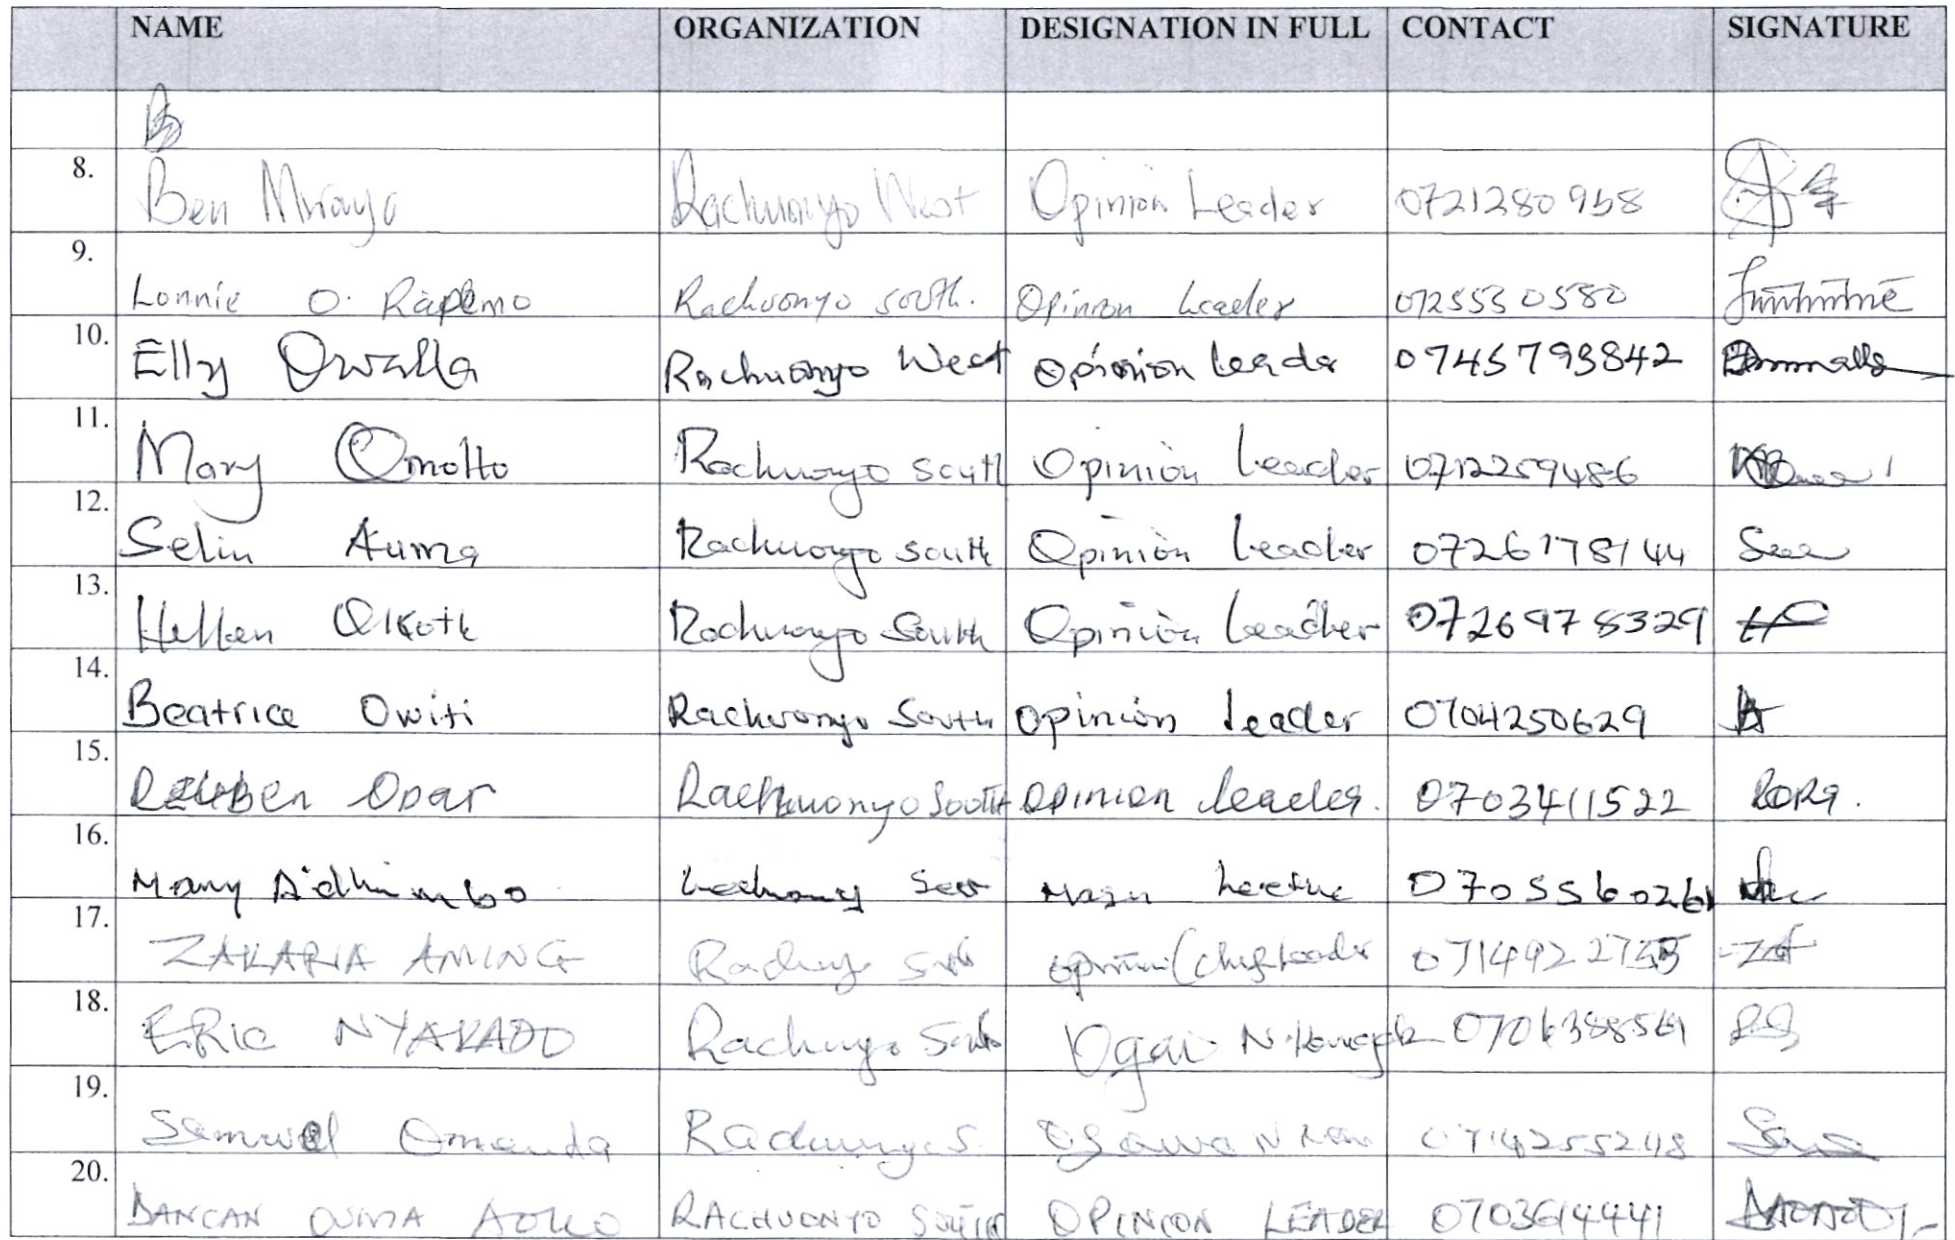 NAME ORGANIZATION DESIGNATION IN FULL CONTACT SIGNATURE
8. Ben Mrayo Rachuonyo West Opinion Leader 0721280968
9. Lonnie O. Rapemo Rachuonyo South. Opinion Leader 0725530580
10. Elly Owalla Rachuonyo West Opinion Leader 0745793842
11. Mary Omollo Rachuonyo South Opinion Leader 0712259486
12. Selin Auma Rachuonyo South Opinion Leader 0726178144
13. Hellen Okoth Rachuonyo South Opinion Leader 0726978329
14. Beatrice Owiti Rachuonyo South Opinion leader 0704250629
15. Reuben Opar Rachuonyo South Opinion leader. 0703411522
16. Mary Adhiambo 0705560261
17. ZAKARIA AMING Rachuyo South
18. ERIC NYAKADO Rachuyo South Ogai
19. Samwel Omenda Rachuonyo S. 0714255248
20. DANCAN OUMA AOKO RACHUONYO SOUTH OPINION LEADER 0703614441